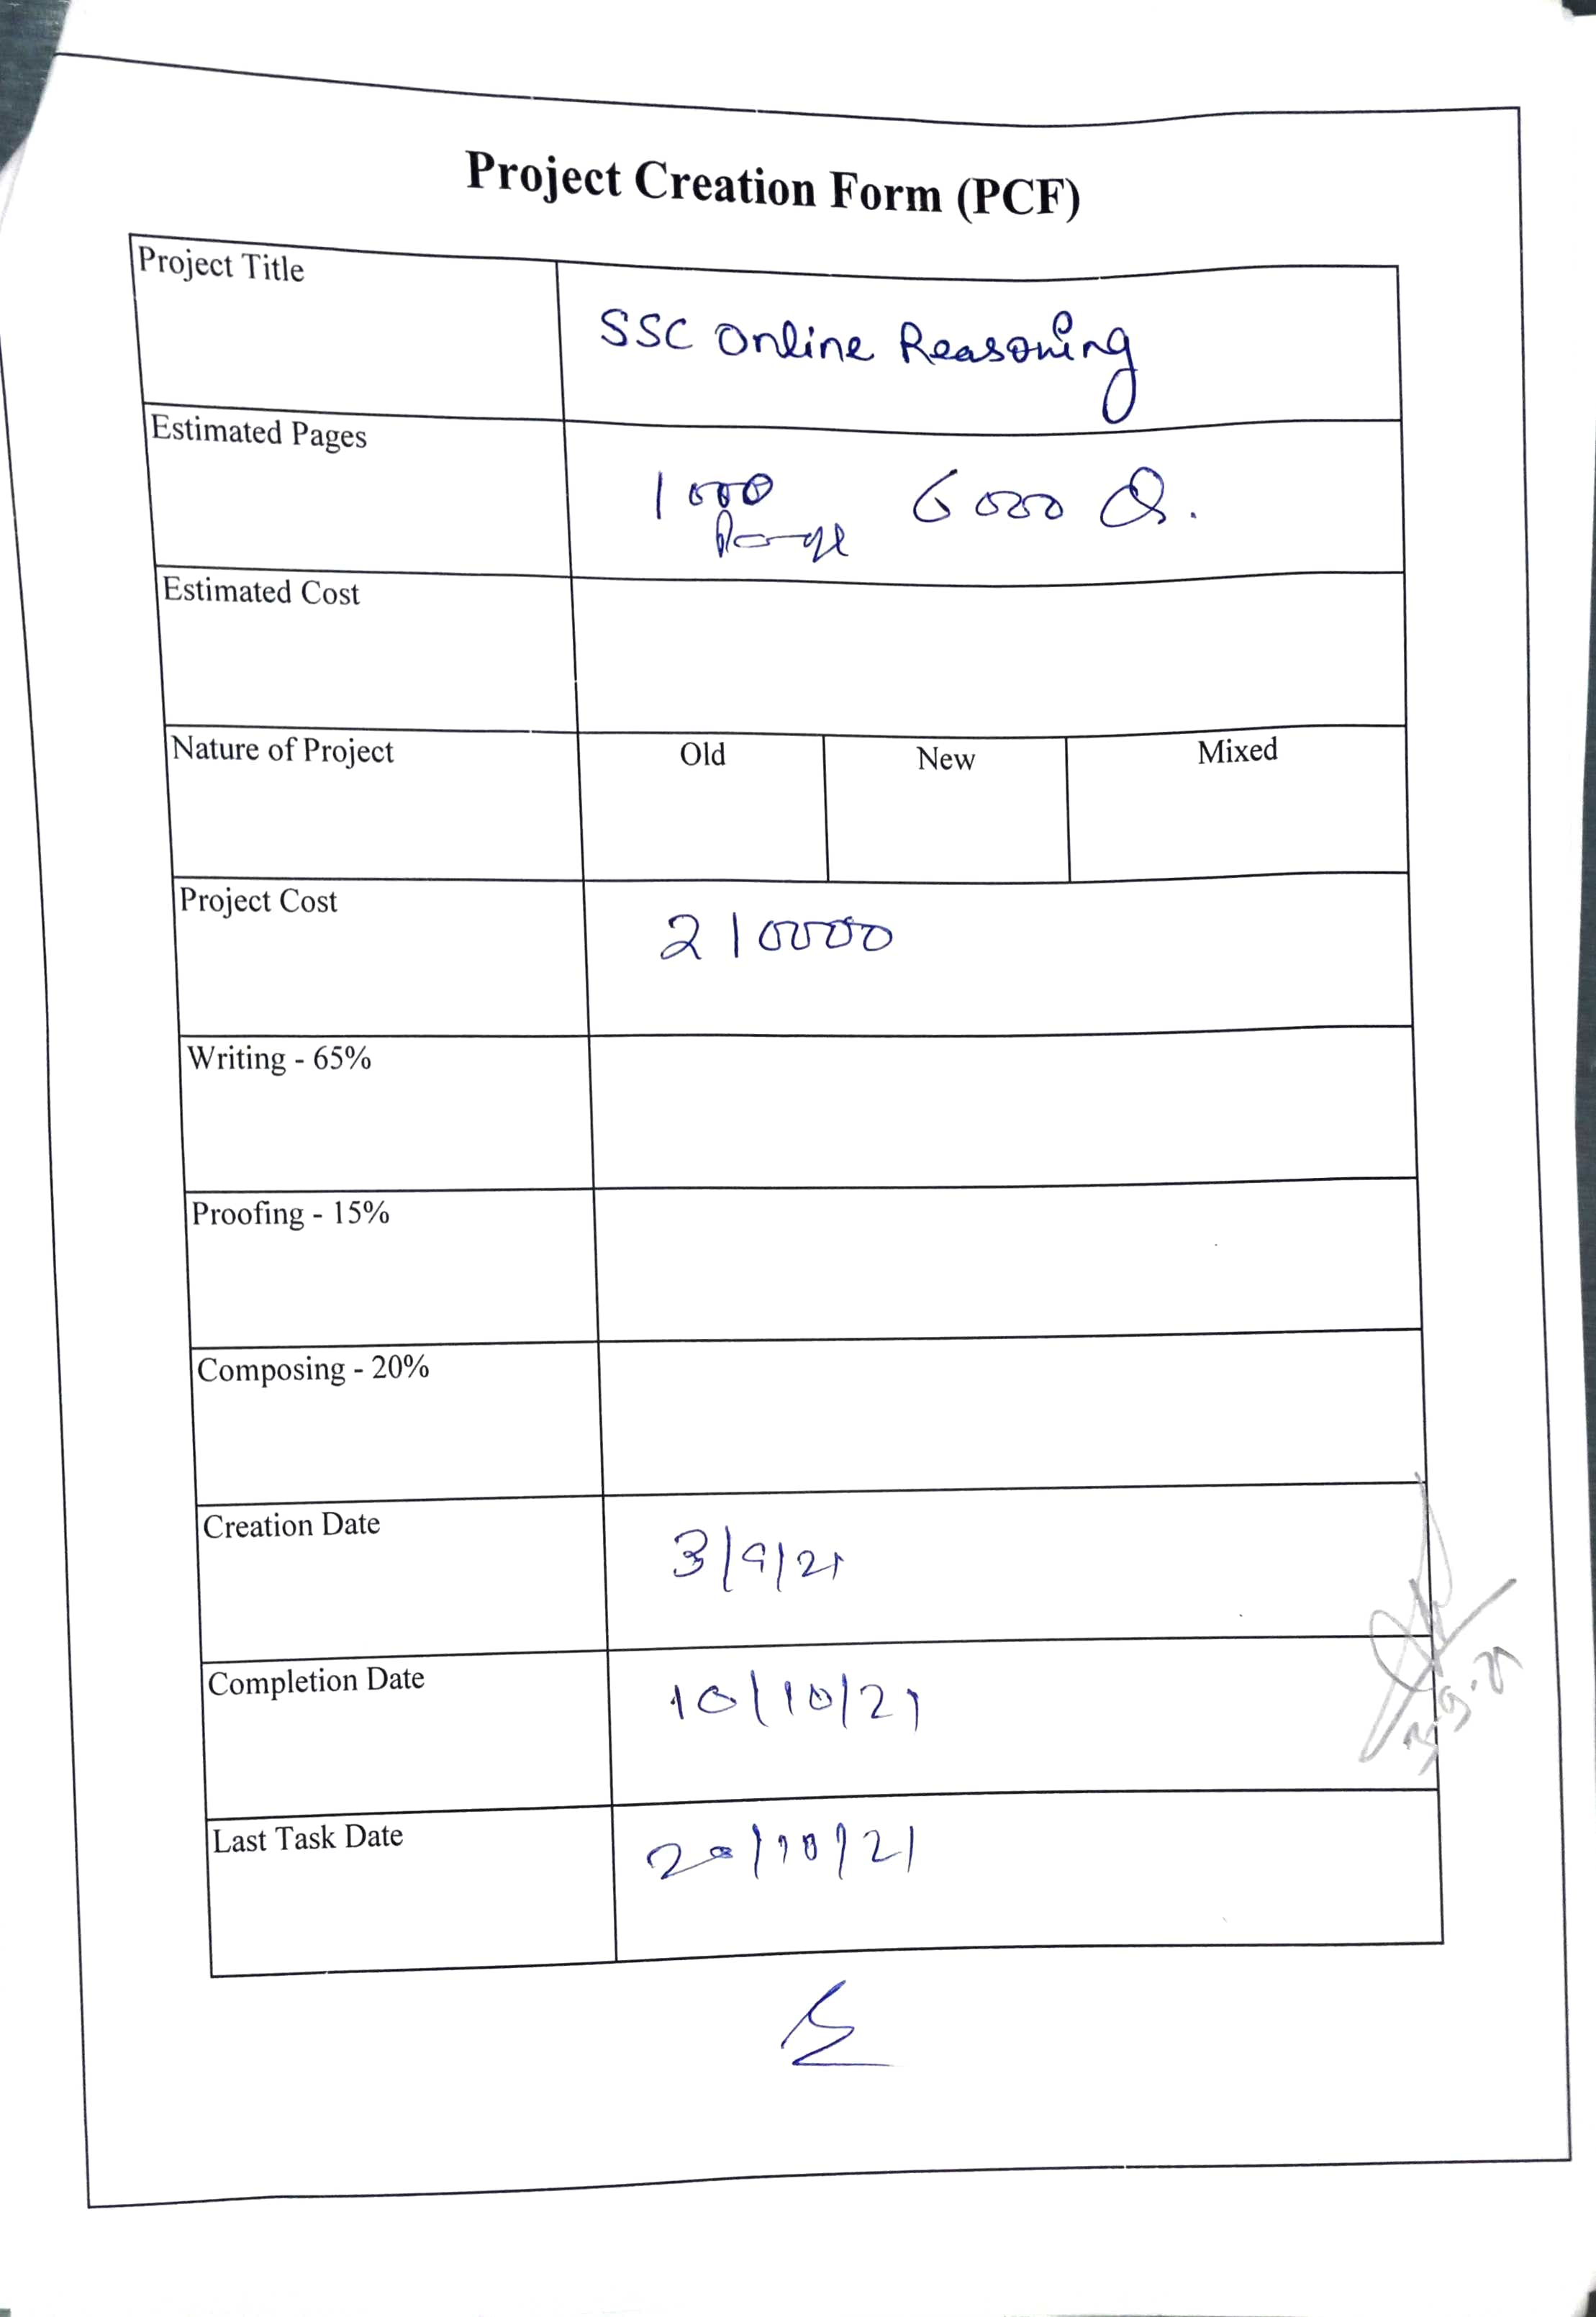 Project Creation Form (PCF)
Project Title
SSC Online Reasoning
Estimated Pages
1000 6000 Q.
Estimated Cost
Nature of Project Old New Mixed
Project Cost
210000
Writing - 65%
Proofing - 15%
Composing - 20%
Creation Date
3/9/21
Completion Date
10/10/21
3.9.21
Last Task Date
20/10/21